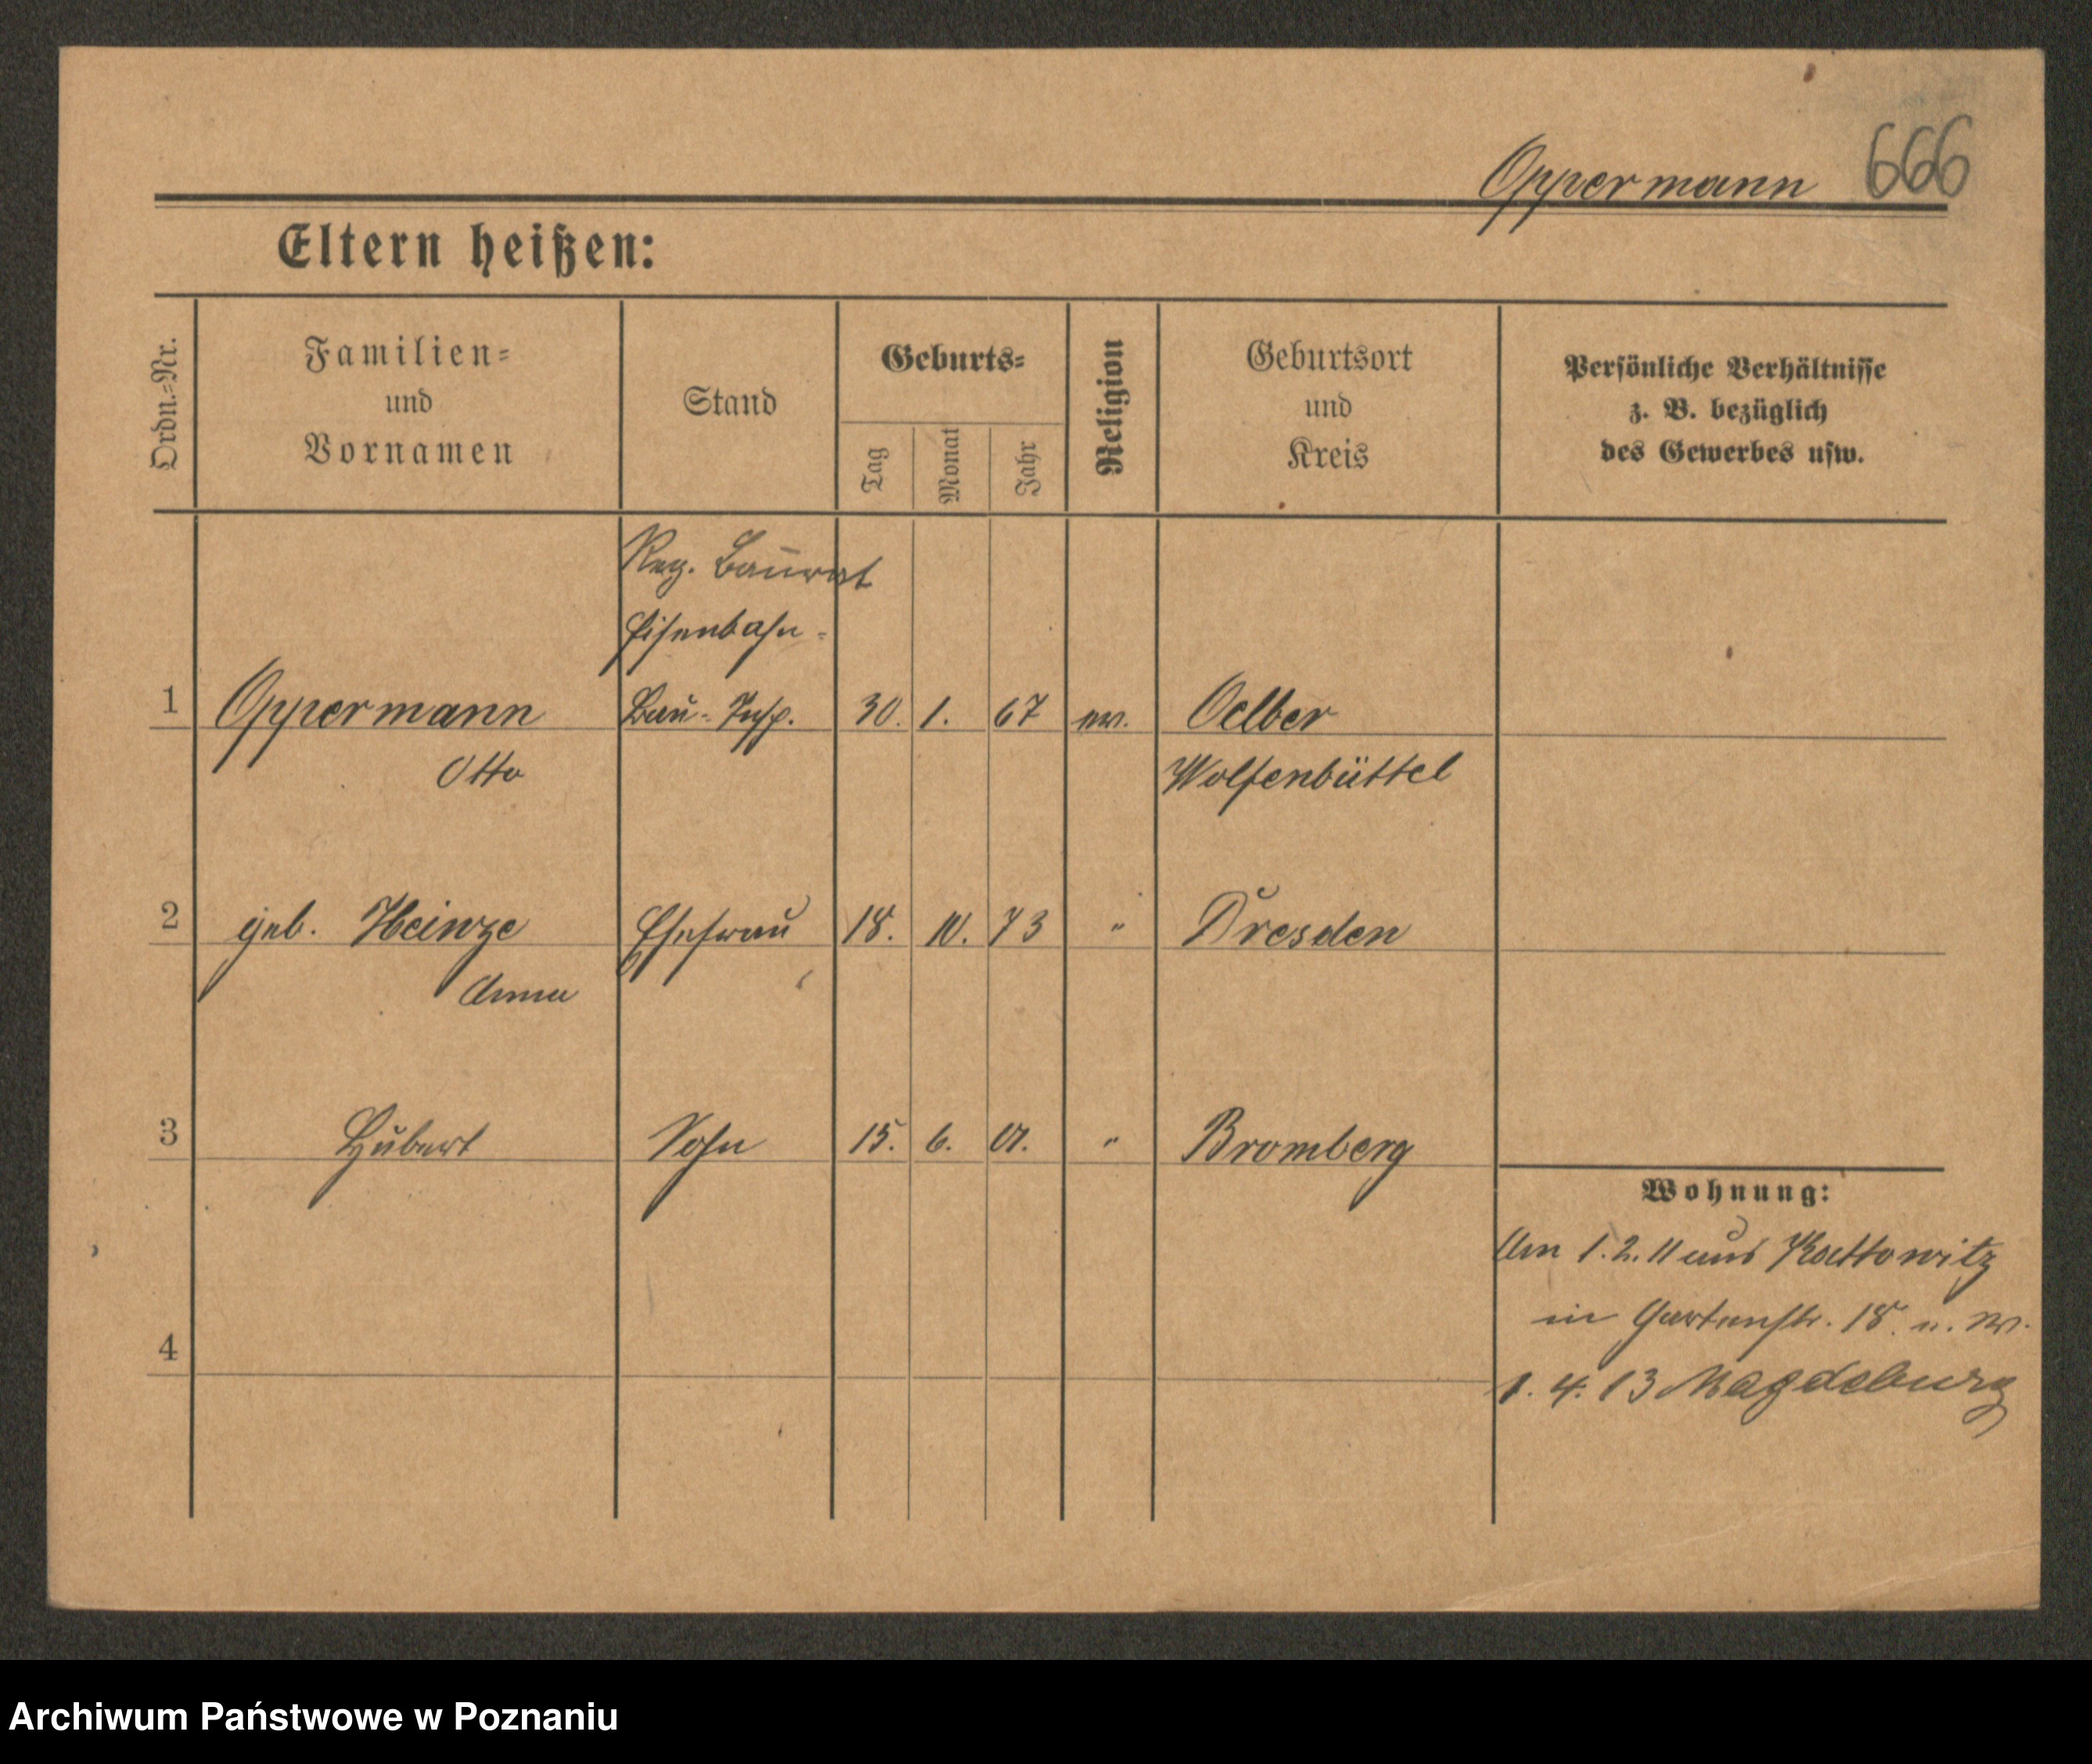 Oppermann 666
Eltern heißen:
Ordn.-Nr.
Familien-
und
Vornamen
Stand
Geburts-
Tag
Monat
Jahr
Religion
Geburtsort
und
Kreis
Persönliche Verhältnisse
z. B. bezüglich
des Gewerbes usw.
Reg. Baurat
Eisenbahn-
1 Oppermann Bau-Insp. 30. 1. 67 ev. Oelber
Otto Wolfenbüttel
2 geb. Heinze Ehefrau 18. 10. 73 " Dresden
Anna
3 Hubert Sohn 15. 6. 01. " Bromberg
Wohnung:
Am 1.2.11 aus Kattowitz
in Gartenstr. 18
4
1. 4. 13 Magdeburg
Archiwum Państwowe w Poznaniu